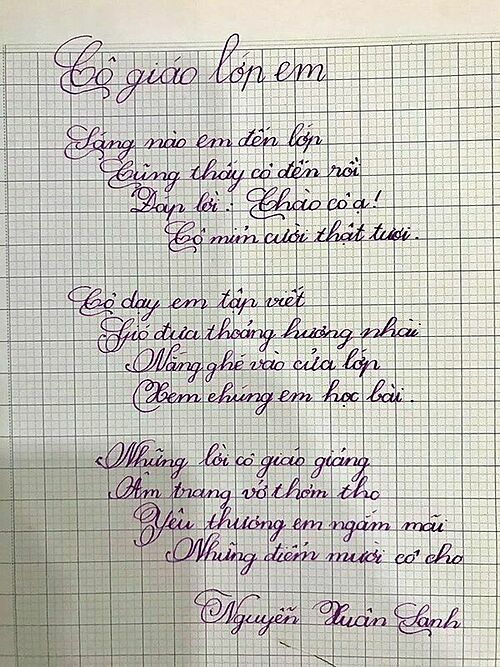 Cô giáo lớp em
Sáng nào em đến lớp
Cũng thấy cô đến rồi
Đáp lời: Chào cô ạ!
Cô mỉm cười thật tươi.
Cô dạy em tập viết
Gió đưa thoảng hương nhài
Nắng ghé vào cửa lớp
Xem chúng em học bài.
Những lời cô giáo giảng
Ấm trang vở thơm tho
Yêu thương em ngắm mãi
Những điểm mười cô cho
Nguyễn Xuân Sanh